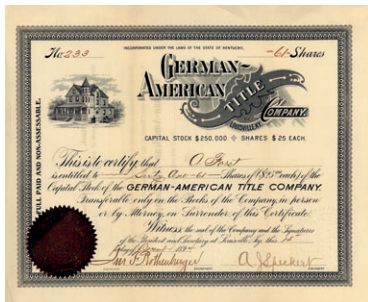 No. 233
INCORPORATED UNDER THE LAWS OF THE STATE OF KENTUCKY.
-61- Shares
GERMAN-
AMERICAN
TITLE
COMPANY.
LOUISVILLE, KY.
CAPITAL STOCK $250.000 SHARES $25 EACH.
FULL PAID AND NON-ASSESSABLE.
This is to certify that
is entitled to Sixty One -61- Shares of ($25.00 each) of the
Capital Stock of the GERMAN-AMERICAN TITLE COMPANY.
Transferable only on the Books of the Company, in person
or by Attorney, on Surrender of this Certificate.
Witness, the seal of the Company and the Signatures
of the President and Secretary at Louisville, Ky. this
day of